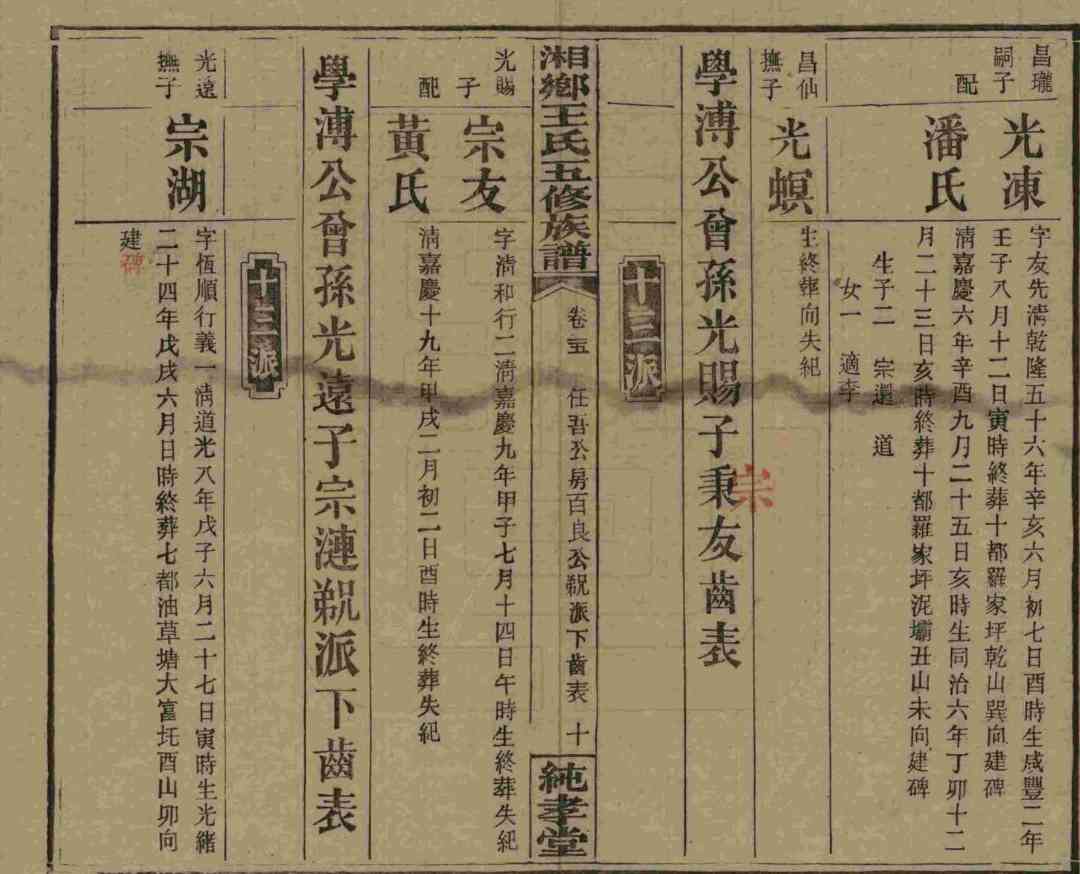 昌瓏
嗣子
光凍
字友先清乾隆五十六年辛亥六月初七日酉時生咸豐二年
壬子八月十二日寅時終葬十都羅家坪乾山巽向建碑
配
潘氏
清嘉慶六年辛酉九月二十五日亥時生同治六年丁卯十二
月二十三日亥時終葬十都羅家坪泥壩丑山未向建碑
生子二 宗還 道
女一 適李
昌仙
撫子
光螟
生終葬向失紀
學溥公曾孫光賜子秉友齒表
宗
十三派
湘鄉王氏五修族譜
卷五 任吾公房百良公派下齒表 十
純孝堂
光賜
子
宗友
字清和行二清嘉慶九年甲子七月十四日午時生終葬失紀
配
黃氏
清嘉慶十九年甲戌二月初二日酉時生終葬失紀
學溥公曾孫光遠子宗漣派下齒表
十三派
光遠
撫子
宗湖
字恆順行義一清道光八年戊子六月二十七日寅時生光緒
二十四年戊戌六月日時終葬七都油草塘大富圫酉山卯向
建碑